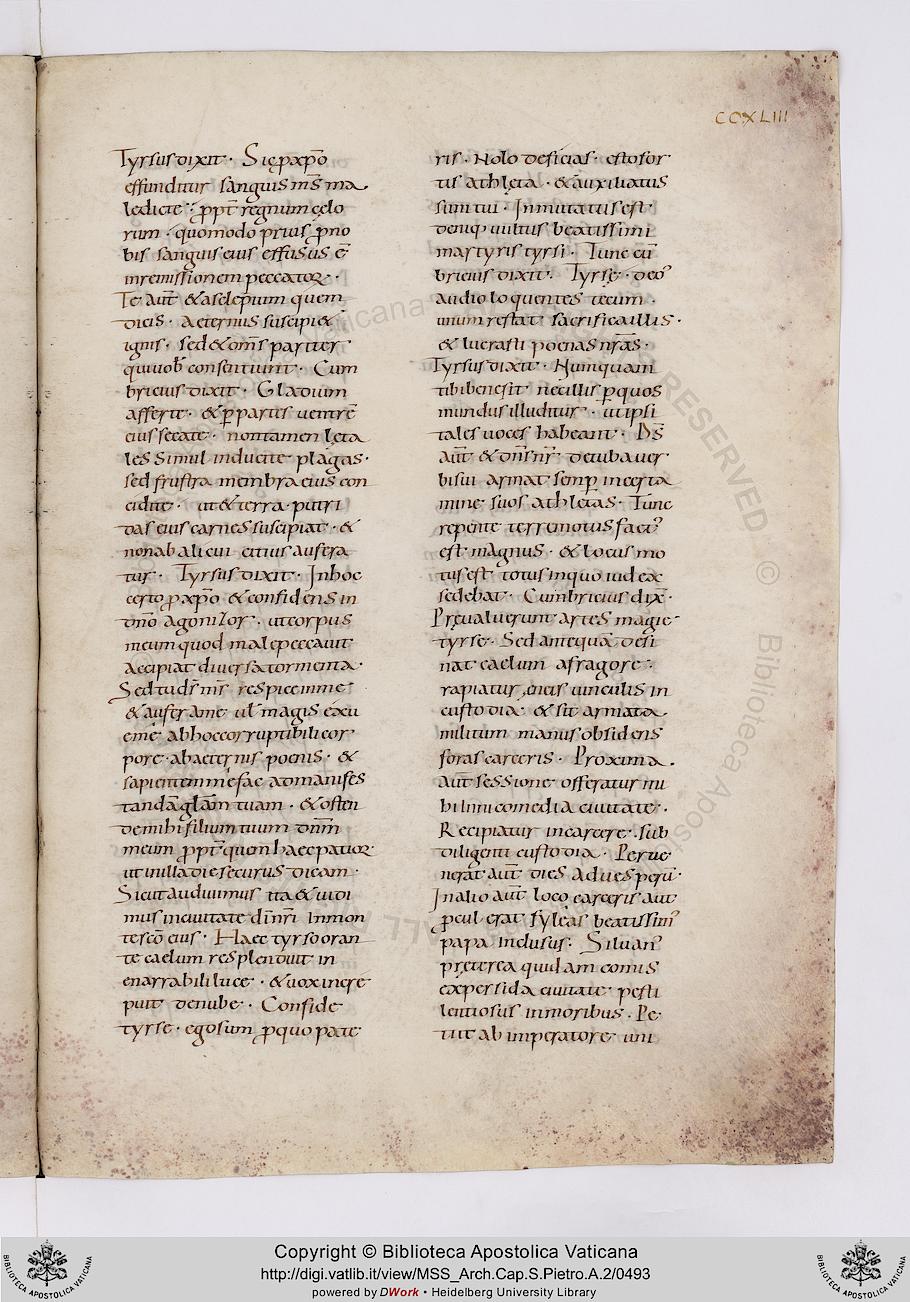 CCXLIII
Tyrsus dixit · Sic p xpo
effunditur sanguis mS ma
ledicte · ppt regnum celo
rum · quomodo prius p no
bis sanguis eius effusus ē
in remissionem peccator ·
Te aut & asclepium quem
dicis · aeternus suscipi&
ignis · sed & omS pariter
qui uob consentiunt · Cum
bricius dixit · Gladium
afferte · & p partes uentrē
eius secate · non tamen leta
les simul inducite plagas ·
sed frustra membra eius con
cidite · ut & terra putri
das eius carnes suscipiat · &
non ab alicui citius aufera
tur · Tyrsus dixit · In hoc
certo p xpo & confidens in
dno agonizor · ut corpus
meum quod male peccauit
accipiat diuersa tormenta ·
Sed tu dS mS respice in me
& aufer a me ul magis exu
e me ab hoc corruptibili cor
pore · ab aeternis poenis · &
sapientem me fac ad manifes
tandā glam tuam · & osten
de mihi filium tuum dnm
meum ppt quem haec patior
ut in illa die securus dicam ·
Sicut audiuimus ita & uidi
mus in ciuitate di nri in mon
te sco eius · Haec tyrso oran
te caelum resplenduit in
enarrabili luce · & uox incre
puit de nube · Confide
tyrse · ego sum p quo pate
ris · Nolo deficias · esto for
tis athleta · & auxiliatus
sum tui · Inmutatus est
deniq uultus beatissimi
martyris tyrsi · Tunc cū
bricius dixit · Tyrse · deos
audio loquentes tecum ·
unum restat sacrifica illis ·
& lucrasti poenas nras ·
Tyrsus dixit · Numquam
tibi bene sit nec illis p quos
mundus illuditur · ut ipsi
tales uoces habeant · DS
aut & dnS nr · de cuba uer
bi sui armat semp in certa
mine suos athletas · Tunc
repente terremotus factus
est magnus · & locus mo
tus est totus in quo iudex
sedebat · Cumbricius dix ·
Preualuerunt artes magice
tyrse · Sed antequā desi
nat caelum a fragore ·
rapiatur eneis uinculis in
custodia · & sit armata
militum manus obsidens
foras carceris · Proxima
aut sessione offeratur mi
bi in nicomedia ciuitate ·
Recipiatur in carcere · sub
diligenti custodia · Perue
nerat aut dies ad uesperū ·
In alio aut loco carceris aut
pcul erat fyleas beatissimus
papa inclusus · Siluanus
preterea quidam comis
ex persida ciuitate pesti
lentiosus in moribus · Pe
tiit ab imperatore uni
Copyright © Biblioteca Apostolica Vaticana
http://digi.vatlib.it/view/MSS_Arch.Cap.S.Pietro.A.2/0493
powered by DWork • Heidelberg University Library